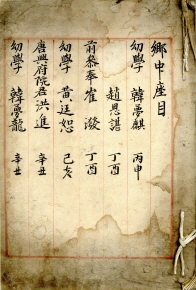 鄕中座目
幼學 韓夢麒 丙申
趙思諶 丁酉
前參奉 崔濬 丁酉
幼學 黃廷恕 己亥
唐興府院君洪進 辛丑
幼學 韓夢龍 辛丑